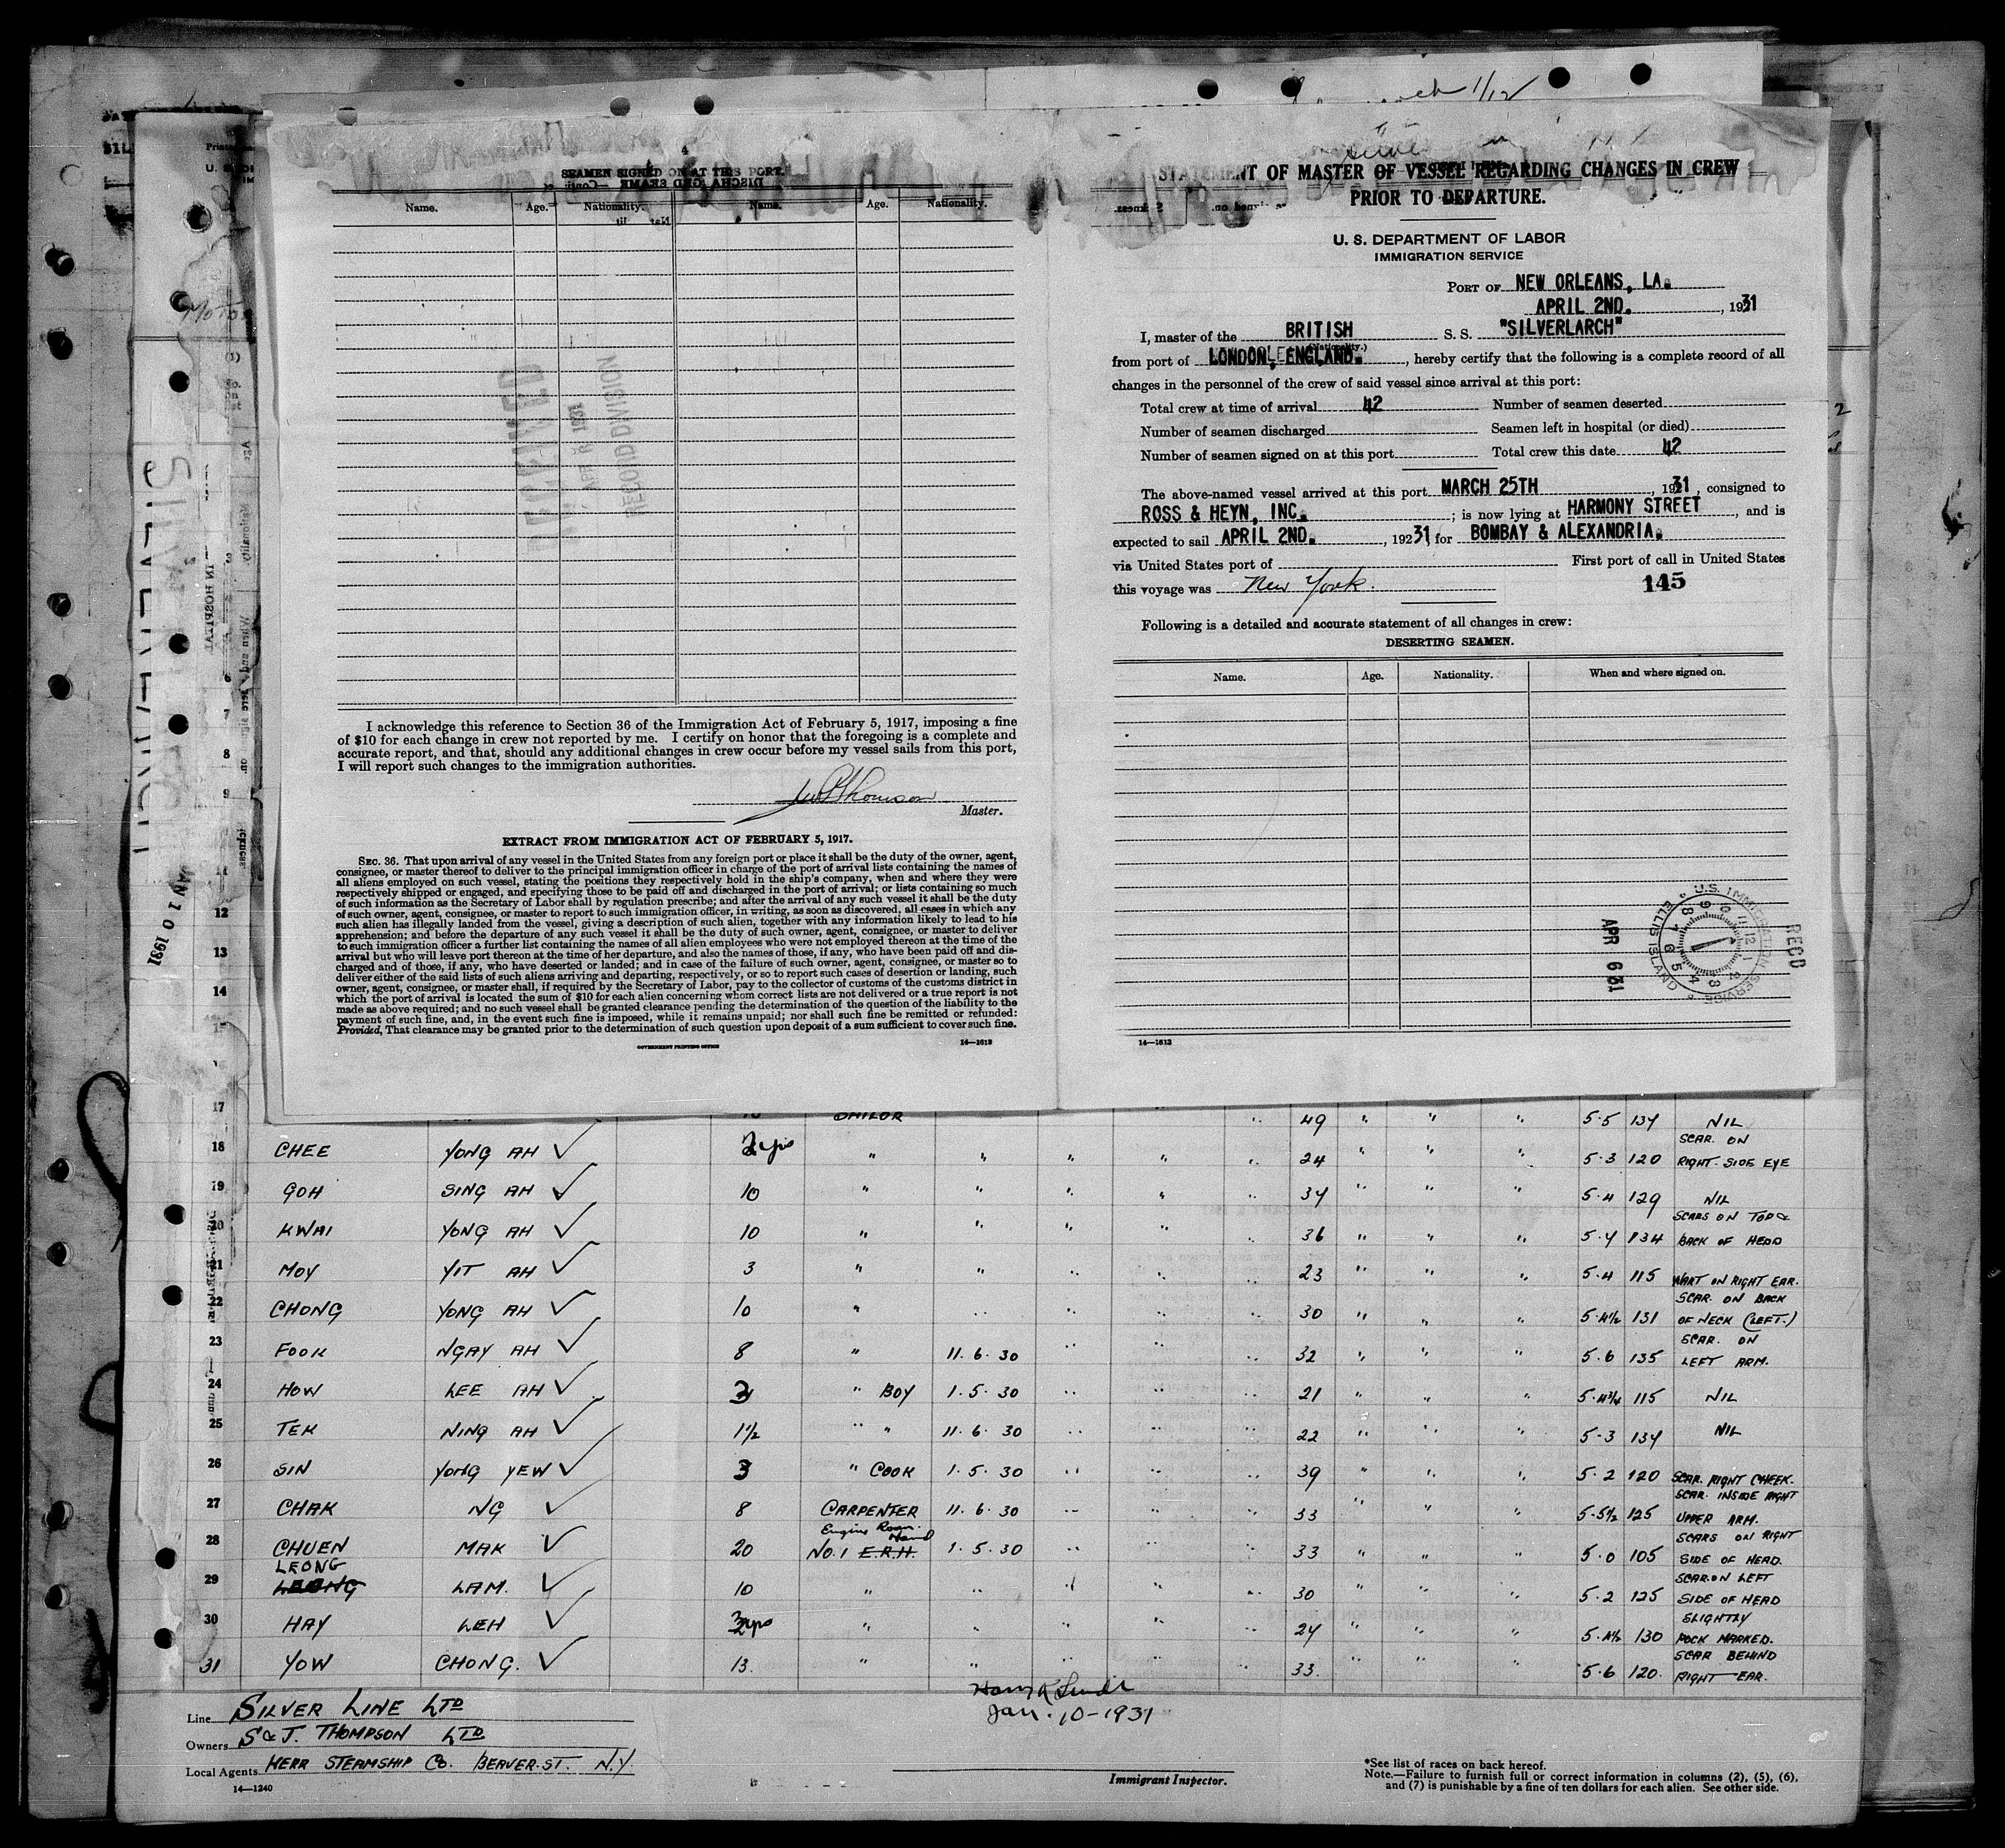 SEAMEN SIGNED ON AT THIS PORT.
Name. Age. Nationality. Name. Age. Nationality.
APR 6 1931
RECORD DIVISION
I acknowledge this reference to Section 36 of the Immigration Act of February 5, 1917, imposing a fine
of $10 for each change in crew not reported by me. I certify on honor that the foregoing is a complete and
accurate report, and that, should any additional changes in crew occur before my vessel sails from this port,
I will report such changes to the immigration authorities.
Master.
EXTRACT FROM IMMIGRATION ACT OF FEBRUARY 5, 1917.
SEC. 36. That upon arrival of any vessel in the United States from any foreign port or place it shall be the duty of the owner, agent,
consignee, or master thereof to deliver to the principal immigration officer in charge of the port of arrival lists containing the names of
all aliens employed on such vessel, stating the positions they respectively hold in the ship's company, when and where they were
respectively shipped or engaged, and specifying those to be paid off and discharged in the port of arrival; or lists containing so much
of such information as the Secretary of Labor shall by regulation prescribe; and after the arrival of any such vessel it shall be the duty
of such owner, agent, consignee, or master to report to such immigration officer, in writing, as soon as discovered, all cases in which any
such alien has illegally landed from the vessel, giving a description of such alien, together with any information likely to lead to his
apprehension; and before the departure of any such vessel it shall be the duty of such owner, agent, consignee, or master to deliver
to such immigration officer a further list containing the names of all alien employees who were not employed thereon at the time of the
arrival but who will leave port thereon at the time of her departure, and also the names of those, if any, who have been paid off and dis-
charged and of those, if any, who have deserted or landed; and in case of the failure of such owner, agent, consignee, or master so to
deliver either of the said lists of such aliens arriving and departing, respectively, or so to report such cases of desertion or landing, such
owner, agent, consignee, or master shall, if required by the Secretary of Labor, pay to the collector of customs of the customs district in
which the port of arrival is located the sum of $10 for each alien concerning whom correct lists are not delivered or a true report is not
made as above required; and no such vessel shall be granted clearance pending the determination of the question of the liability to the
payment of such fine, and, in the event such fine is imposed, while it remains unpaid; nor shall such fine be remitted or refunded:
Provided, That clearance may be granted prior to the determination of such question upon deposit of a sum sufficient to cover such fine.
GOVERNMENT PRINTING OFFICE 14—1613
STATEMENT OF MASTER OF VESSEL REGARDING CHANGES IN CREW
PRIOR TO DEPARTURE.
U. S. DEPARTMENT OF LABOR
IMMIGRATION SERVICE
PORT OF NEW ORLEANS, LA.
APRIL 2ND., 1931
I, master of the BRITISH S. S. "SILVERLARCH"
(Nationality.)
from port of LONDON, ENGLAND., hereby certify that the following is a complete record of all
changes in the personnel of the crew of said vessel since arrival at this port:
Total crew at time of arrival 42 Number of seamen deserted
Number of seamen discharged Seamen left in hospital (or died)
Number of seamen signed on at this port Total crew this date 42
The above-named vessel arrived at this port MARCH 25TH, 1931, consigned to
ROSS & HEYN, INC.; is now lying at HARMONY STREET, and is
expected to sail APRIL 2ND., 19231 for BOMBAY & ALEXANDRIA.
via United States port of First port of call in United States
this voyage was New York. 145
Following is a detailed and accurate statement of all changes in crew:
DESERTING SEAMEN.
Name. Age. Nationality. When and where signed on.
U.S. IMMIGRATION SERVICE ELLIS ISLAND
RECD
APR 6 31
14—1613
JAN 10 1931
17 SAILOR " 49 " " " 5·5 134 NIL
18 CHEE YONG AH ✓ 2yrs " " " " " 24 " " " 5·3 120 SCAR. ON RIGHT. SIDE EYE
19 GOH SING AH ✓ 10 " " " " " 34 " " " 5·4 129 NIL
20 KWAI YONG AH ✓ 10 " " " " " 36 " " " 5·4 134 SCARS ON TOP & BACK OF HEAD
21 MOY YIT AH ✓ 3 " " " " " 23 " " " 5·4 115 WART ON RIGHT EAR.
22 CHONG YONG AH ✓ 10 " " " " " 30 " " " 5·4½ 131 SCAR. ON BACK OF NECK (LEFT.)
23 FOOK NGAY AH ✓ 8 " 11·6·30 " " " 32 " " " 5·6 135 SCAR. ON LEFT ARM.
24 HOW LEE AH ✓ 3 " BOY 1·5·30 " " " 21 " " " 5·4¾ 115 NIL
25 TEK NING AH ✓ 1½ " " 11·6·30 " " " 22 " " " 5·3 134 NIL
26 SIN YONG YEW ✓ 3 " COOK 1·5·30 " " " 39 " " " 5·2 120 SCAR. RIGHT CHEEK.
27 CHAK NG ✓ 8 CARPENTER 11·6·30 " " " 33 " " " 5·5½ 125 SCAR. INSIDE RIGHT UPPER ARM.
28 CHUEN MAK ✓ 20 No. 1 E.R.H. Engine Room Hand 1·5·30 " " " 33 " " " 5·0 105 SCARS ON RIGHT SIDE OF HEAD.
29 LEONG LEONG LAM. ✓ 10 " " " " " 30 " " " 5·2 125 SCAR ON LEFT SIDE OF HEAD
30 HAY LEH ✓ 3yrs " " " " " 24 " " " 5·4½ 130 SLIGHTLY POCK MARKED.
31 YOW CHONG. ✓ 13. " " " " " 33. " " " 5·6 120. SCAR BEHIND RIGHT EAR.
Line SILVER LINE LTD
Owners S & J. THOMPSON LTD
Local Agents KERR STEAMSHIP Co. BEAVER. ST. N.Y.
14—1240
Jan. 10-1931
Immigrant Inspector.
*See list of races on back hereof.
Note.—Failure to furnish full or correct information in columns (2), (5), (6),
and (7) is punishable by a fine of ten dollars for each alien. See other side.